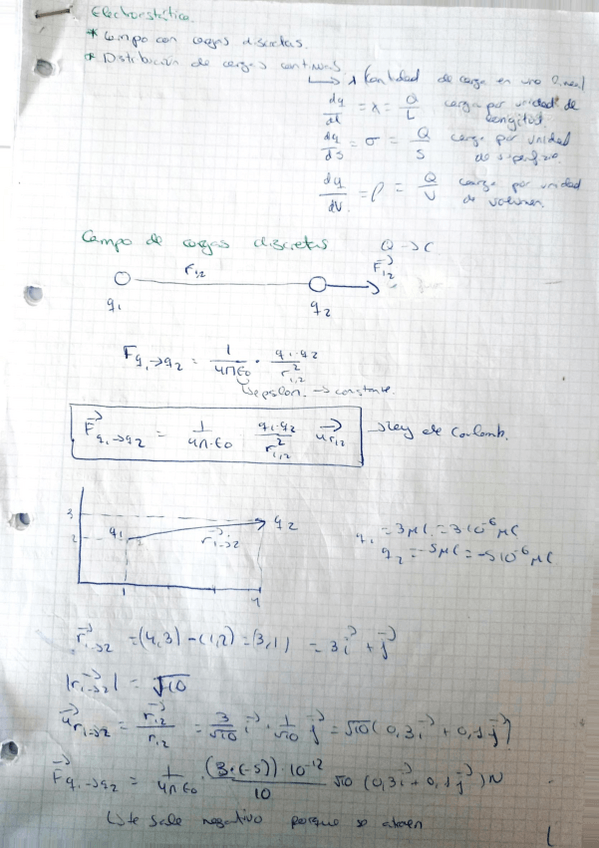 Electrostática.
* Campo con cargas discretas.
* Distribución de cargas continuas.
↳ λ Cantidad de carga en uno lineal
dq/dl = λ = Q/L carga por unidad de longitud.
dq/ds = σ = Q/S carga por unidad de superficie.
dq/dV = ρ = Q/V carga por unidad de volumen.
Campo de cargas discretas Q → C
r₁,₂ F⃗₁,₂
q₁ q₂
F q₁→q₂ = 1/4πε₀ · q₁·q₂/r²₁,₂
↳ epsilon. → constante.
F⃗ q₁→q₂ = 1/4π·ε₀ q₁·q₂/r²₁,₂ u⃗r₁,₂ → Ley de Coulomb.
3 q₂
2 q₁ r⃗₁→₂
1 4
q₁ = 3μC = 3·10⁻⁶ μC
q₂ = -5μC = -5·10⁻⁶ μC
r⃗₁→₂ = (4,3) - (1,2) = (3,1) = 3i⃗ + j⃗
|r⃗₁→₂| = √10
u⃗r₁→₂ = r⃗₁,₂/r₁,₂ = 3/√10 i⃗ · 1/√10 j⃗ = √10 (0,3i⃗ + 0,1j⃗)
F⃗ q₁→q₂ = 1/4πε₀ · (3·(-5))·10⁻¹²/10 √10 (0,3i⃗ + 0,1j⃗) N
↳ te sale negativo porque se atraen
1